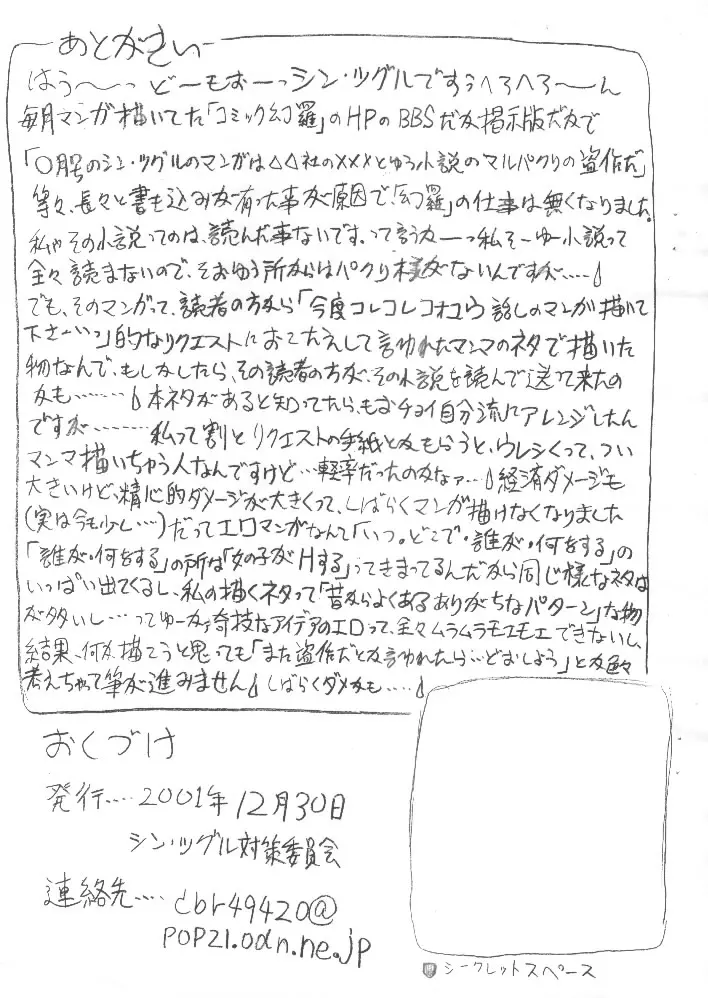 あとがきぃ
はう〜っ どーもおーっシン・ツグルですぅへろへろ〜ん
毎月マンガ描いてた「コミック幻羅」のHPのBBSだか掲示版だかで
「〇月号のシン・ツグルのマンガは△△社の×××とゆう小説のマルパクリの盗作だ」
等々、長々と書き込みが有った事が原因で「幻羅」の仕事は無くなりました。
私ゃその小説ってのは、読んだ事ないです。って言うかーっ私そーゆー小説って
全々読まないので、そおゆう所からはパクり様がないんですが……
でも、そのマンガって、読者の方から「今度コレコレコオユウ話しのマンガ描いて
下さーい」的なリクエストにおこたえして言われたマンマのネタで描いた
物なんで、もしかしたら、その読者の方が、その小説を読んで送って来たの
かも……… 本ネタがあると知ってたら、もおチョイ自分流にアレンジしたん
ですが……… 私って割とリクエストの手紙とかもらうと、ウレシくって、つい
マンマ描いちゃう人なんですけど…軽率だったのかなァ… 経済ダメージも
大きいけど、精心的ダメージが大きくって、しばらくマンガ描けなくなりました
(実は今も少し…)だってエロマンガなんて「いつ。どこで・誰が・何をする」の
「誰が・何をする」の所は「女の子がHする」ってきまってるんだから同じ様なネタは
いっぱい出てくるし、私の描くネタって「昔からよくあるありがちなパターン」な物
が多いし…ってゆーか奇技なアイデアのエロって、全々ムラムラモエモエできないし、
結果、何か描こうと思っても「また盗作だとか言われたら…どおしよう」とか色々
考えちゃって筆が進みません しばらくダメかも……
おくづけ
発行…‥2001年12月30日
シン・ツグル対策委員会
連絡先…‥cbr49420@
pop21.odn.ne.jp
シークレットスペース